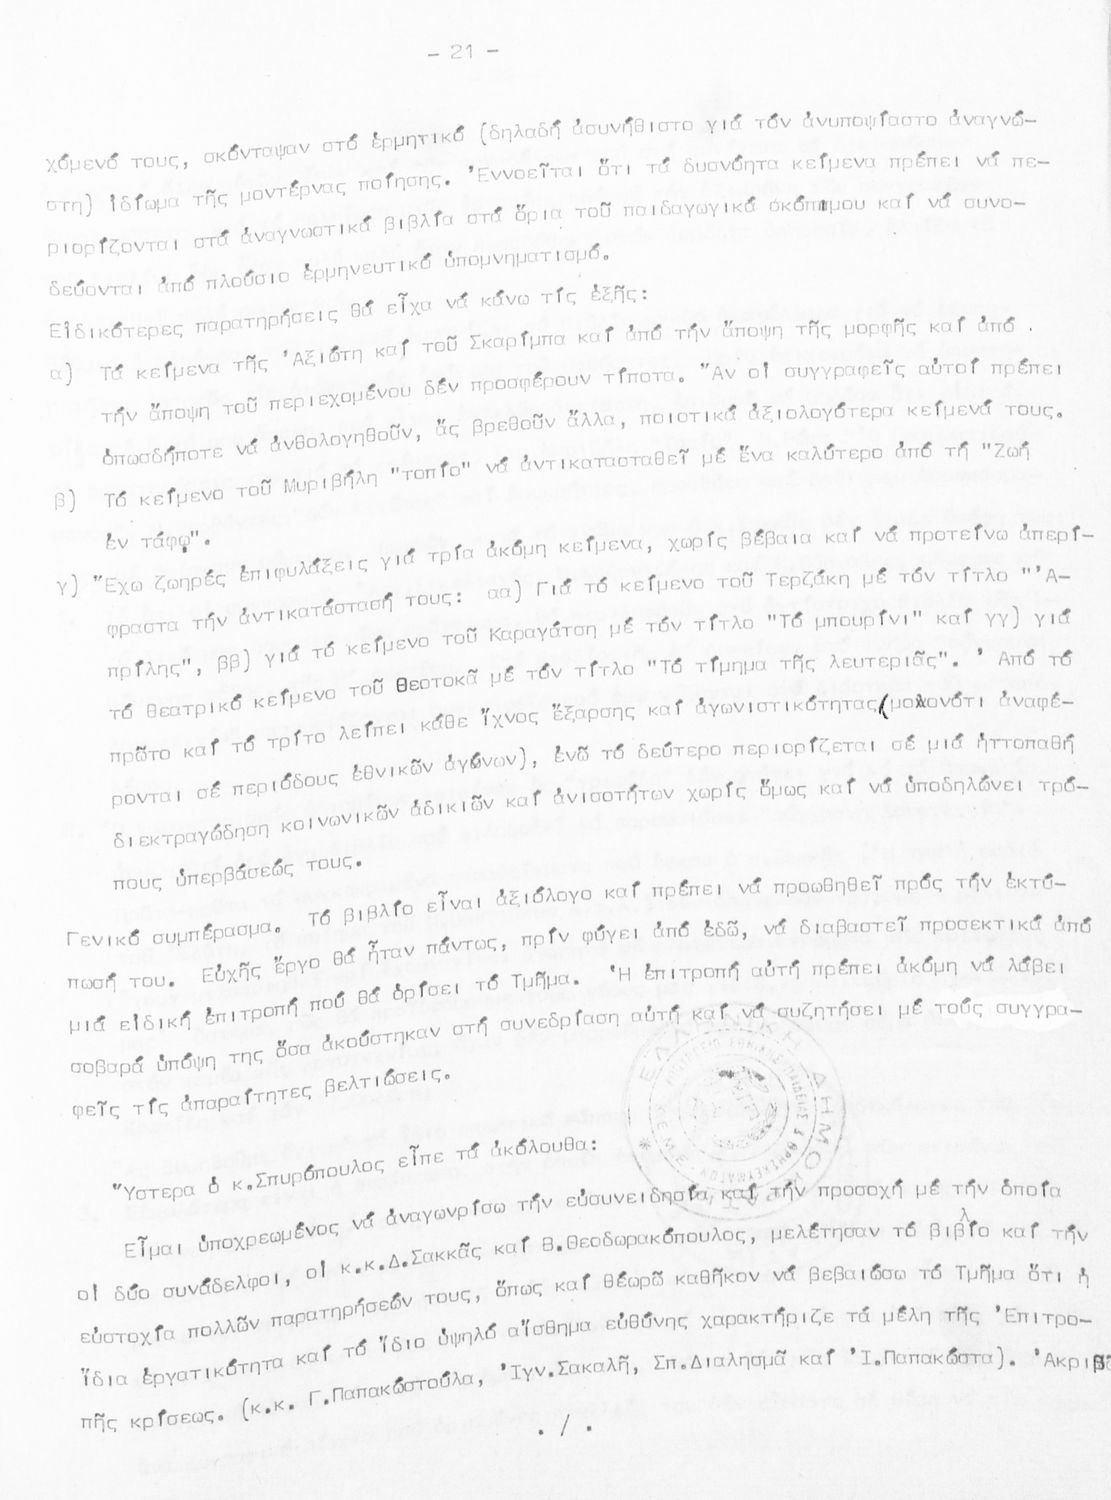 - 21 -
χόμενό τους, σκόνταψαν στό ἑρμητικό (δηλαδή ἀσυνήθιστο γιά τόν ἀνυποψίαστο ἀναγνώ-
στη) ἰδίωμα τῆς μοντέρνας ποίησης. Ἐννοεῖται ὅτι τά δυσνόητα κείμενα πρέπει νά πε-
ριορίζονται στά ἀναγνωστικά βιβλία στά ὅρια τοῦ παιδαγωγικά σκόπιμου καί νά συνο-
δεύονται ἀπό πλούσιο ἑρμηνευτικό ὑπομνηματισμό.
Εἰδικότερες παρατηρήσεις θά εἶχα νά κάνω τίς ἑξῆς:
α) Τά κείμενα τῆς Ἀξιώτη καί τοῦ Σκαρίμπα καί ἀπό τήν ἄποψη τῆς μορφῆς καί ἀπό .
τήν ἄποψη τοῦ περιεχομένου δέν προσφέρουν τίποτα. Ἄν οἱ συγγραφεῖς αὐτοί πρέπει
ὁπωσδήποτε νά ἀνθολογηθοῦν, ἄς βρεθοῦν ἄλλα, ποιοτικά ἀξιολογότερα κείμενά τους.
β) Τό κείμενο τοῦ Μυριβήλη "τοπίο" νά ἀντικατασταθεῖ μέ ἕνα καλύτερο ἀπό τή "Ζωή
ἐν τάφῳ".
γ) Ἔχω ζωηρές ἐπιφυλάξεις γιά τρία ἀκόμη κείμενα, χωρίς βέβαια καί νά προτείνω ἀπερί-
φραστα τήν ἀντικατάστασή τους: αα) Γιά τό κείμενο τοῦ Τερζάκη μέ τόν τίτλο "Ἀ-
πρίλης", ββ) γιά τό κείμενο τοῦ Καραγάτση μέ τόν τίτλο "Τό μπουρίνι" καί γγ) γιά
τό θεατρικό κείμενο τοῦ Θεοτοκᾶ μέ τόν τίτλο "Τό τίμημα τῆς λευτεριᾶς". Ἀπό τό
πρῶτο καί τό τρίτο λείπει κάθε ἴχνος ἔξαρσης καί ἀγωνιστικότητας (μολονότι ἀναφέ-
ρονται σέ περιόδους ἐθνικῶν ἀγώνων), ἐνῶ τό δεύτερο περιορίζεται σέ μιά ἡττοπαθή
διεκτραγώδηση κοινωνικῶν ἀδικιῶν καί ἀνισοτήτων χωρίς ὅμως καί νά ὑποδηλώνει τρό-
πους ὑπερβάσεώς τους.
Γενικό συμπέρασμα. Τό βιβλίο εἶναι ἀξιόλογο καί πρέπει νά προωθηθεῖ πρός τήν ἐκτύ-
πωσή του. Εὐχῆς ἔργο θά ἦταν πάντως, πρίν φύγει ἀπό ἐδῶ, νά διαβαστεῖ προσεκτικά ἀπό
μιά εἰδική ἐπιτροπή πού θά ὁρίσει τό Τμῆμα. Ἡ ἐπιτροπή αὐτή πρέπει ἀκόμη νά λάβει
σοβαρά ὑπόψη της ὅσα ἀκούστηκαν στή συνεδρίαση αὐτή καί νά συζητήσει μέ τούς συγγρα-
φεῖς τίς ἀπαραίτητες βελτιώσεις.
ΕΛΛΗΝΙΚΗ ΔΗΜΟΚΡΑΤΙΑ
Ὕστερα ὁ κ.Σπυρόπουλος εἶπε τά ἀκόλουθα:
Εἶμαι ὑποχρεωμένος νά ἀναγωνρίσω τήν εὐσυνειδησία καί τήν προσοχή μέ τήν ὁποία
οἱ δύο συνάδελφοι, οἱ κ.κ.Δ.Σακκᾶς καί Θ.Θεοδωρακόπουλος, μελέτησαν τό βιβλίο καί τήν
εὐστοχία πολλῶν παρατηρήσεών τους, ὅπως καί θέωρῶ καθῆκον νά βεβαιώσω τό Τμῆμα ὅτι ἡ
ἴδια ἐργατικότητα καί τό ἴδιο ὑψηλό αἴσθημα εὐθύνης χαρακτήριζε τά μέλη τῆς Ἐπιτρο-
πῆς κρίσεως. (κ.κ. Γ.Παπακώστούλα, Ἰγν.Σακαλῆ, Σπ.Διαλησμᾶ καί Ἰ.Παπακώστα). Ἀκριβῶ
. / .